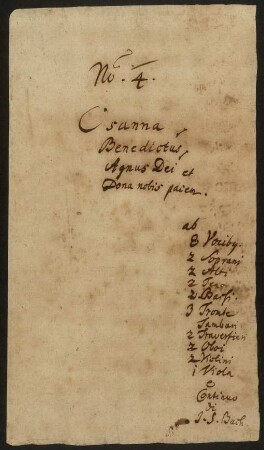 No. 4.
Osanna,
Benedictus,
Agnus Dei et
Dona nobis pacem.
ab
8 Vocibg.
2 Soprani
2 Alti
2 Ten:
2 Bassi
3 Trombe
Tamburi
2 Traversieri
2 Oboi
2 Violini
1 Viola
e
Continuo
di
J. S. Bach.